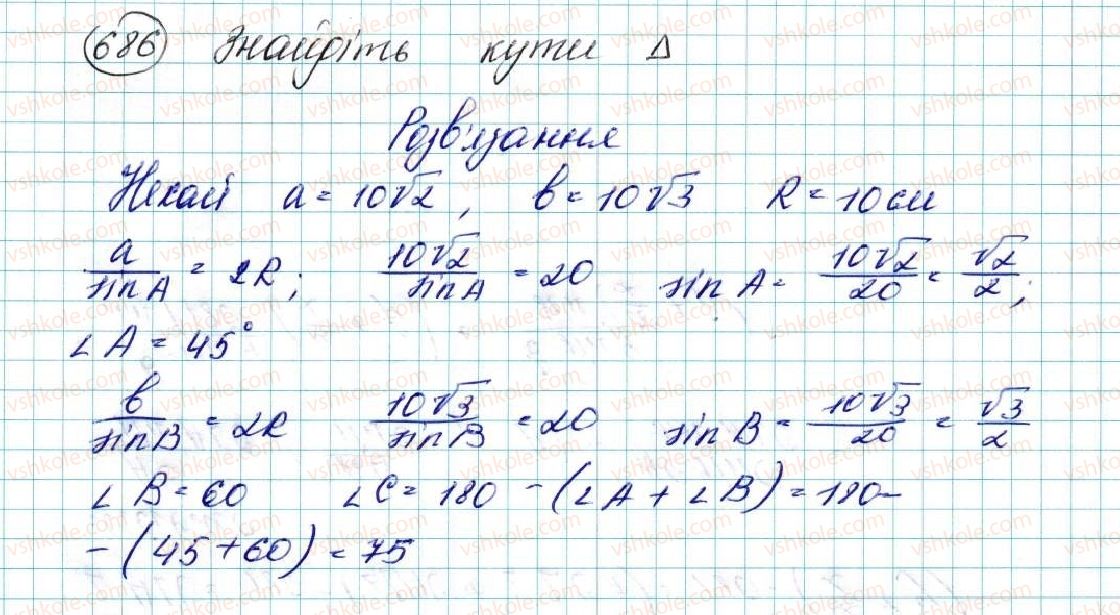 686 Знайдіть кути Δ
Розв'язання
Нехай a = 10√2, b = 10√3 R = 10 см
a/sin A = 2R; 10√2/sin A = 20 sin A = 10√2/20 = √2/2;
∠A = 45°
b/sin B = 2R 10√3/sin B = 20 sin B = 10√3/20 = √3/2
∠B = 60 ∠C = 180 - (∠A + ∠B) = 180 -
- (45 + 60) = 75